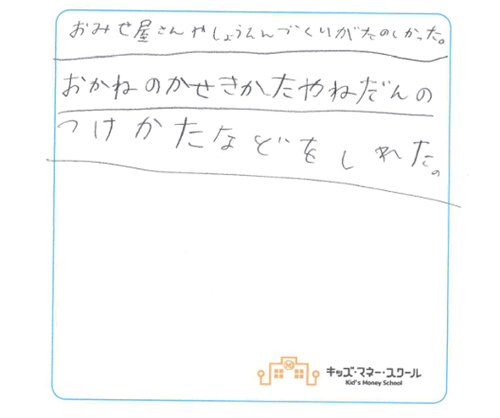 おみせ屋さんやしょうひんづくりがたのしかった。
おかねのかせきかたやねだんの
つけかたなどをしれた。
キッズ・マネー・スクール
Kid's Money School